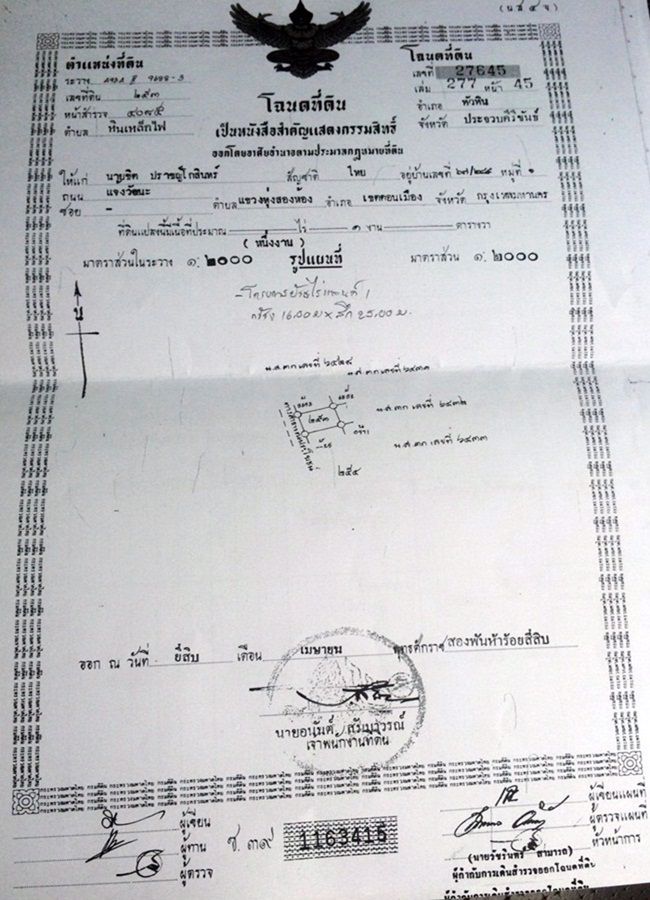 (น.ส.๔ จ)
ตำแหน่งที่ดิน
ระวาง ๔๙๓๔ II ๑๖๘๘-3
เลขที่ดิน ๒๕๓
หน้าสำรวจ ๔๐๗๕
ตำบล หินเหล็กไฟ
โฉนดที่ดิน
เลขที่ 27645
เล่ม 277 หน้า 45
อำเภอ หัวหิน
จังหวัด ประจวบคีรีขันธ์
โฉนดที่ดิน
เป็นหนังสือสำคัญแสดงกรรมสิทธิ์
ออกโดยอาศัยอำนาจตามประมวลกฎหมายที่ดิน
ให้แก่ นายชิต ปราชญ์โกสินทร์ สัญชาติ ไทย อยู่บ้านเลขที่ ๖๗/๒๔๕ หมู่ที่ ๑
ถนน แจงวัฒนะ
ซอย - ตำบล แขวงทุ่งสองห้อง อำเภอ เขตดอนเมือง จังหวัด กรุงเทพมหานคร
ที่ดินแปลงนี้มีเนื้อที่ประมาณ ไร่ ๑ งาน ตารางวา
( หนึ่งงาน )
มาตราส่วนในระวาง ๑: ๒๐๐๐ รูปแผนที่ มาตราส่วน ๑: ๒๐๐๐
น
กว้าง 16.00 ม x ลึก 25.00 ม.
น.ส.๓ก เลขที่ ๖๔๒๘
น.ส.๓ก เลขที่ ๖๔๓๑
น.ส.๓ก เลขที่ ๖๔๓๒
น.ส.๓ก เลขที่ ๖๔๓๓
๒๕๓
ทางสาธารณประโยชน์
๒๕๔
ออก ณ วันที่ ยี่สิบ เดือน เมษายน พุทธศักราช สองพันห้าร้อยสี่สิบ
นายอนุมัติ สริมาวรณ์
เจ้าพนักงานที่ดิน
ผู้เขียน
ผู้ทาน
ผู้ตรวจ
ช.๓๙
1163415
ผู้เขียนแผนที่
ผู้ตรวจแผนที่
หัวหน้าการ
(นายวัชรินทร์ สามารถ)
ผู้กำกับการเดินสำรวจออกโฉนดที่ดิน
ผู้กำกับการเดินสำรวจออกโฉนดที่ดิน